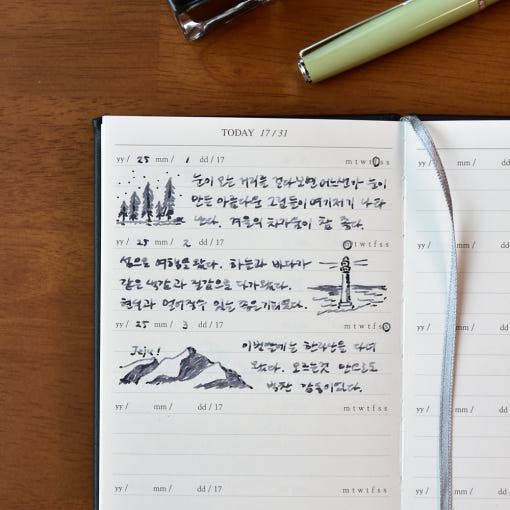 TODAY 17 / 31
yy / 25 mm / 1 dd / 17 m t w t f s s
눈이 오는 거리를 걷다보면 어느샌가 눈이
만든 아름다운 그림들이 여기저기 나타
난다. 겨울의 차가움이 참 좋다.
yy / 25 mm / 2 dd / 17 m t w t f s s
섬으로 여행을 왔다. 하늘과 바다가
같은 색감과 질감으로 다가왔다.
현실과 멀어질수 있는 좋은 기회였다.
yy / 25 mm / 3 dd / 17 m t w t f s s
Jeju!
이번 달에는 한라산을 다녀
왔다. 오르는것 만으로도
벅찬 감동이었다.
yy / mm / dd / 17 m t w t f s s
yy / mm / dd / 17 m t w t f s s
yy / mm /
yy / mm /
yy / mm /
yy / mm /
yy / mm /